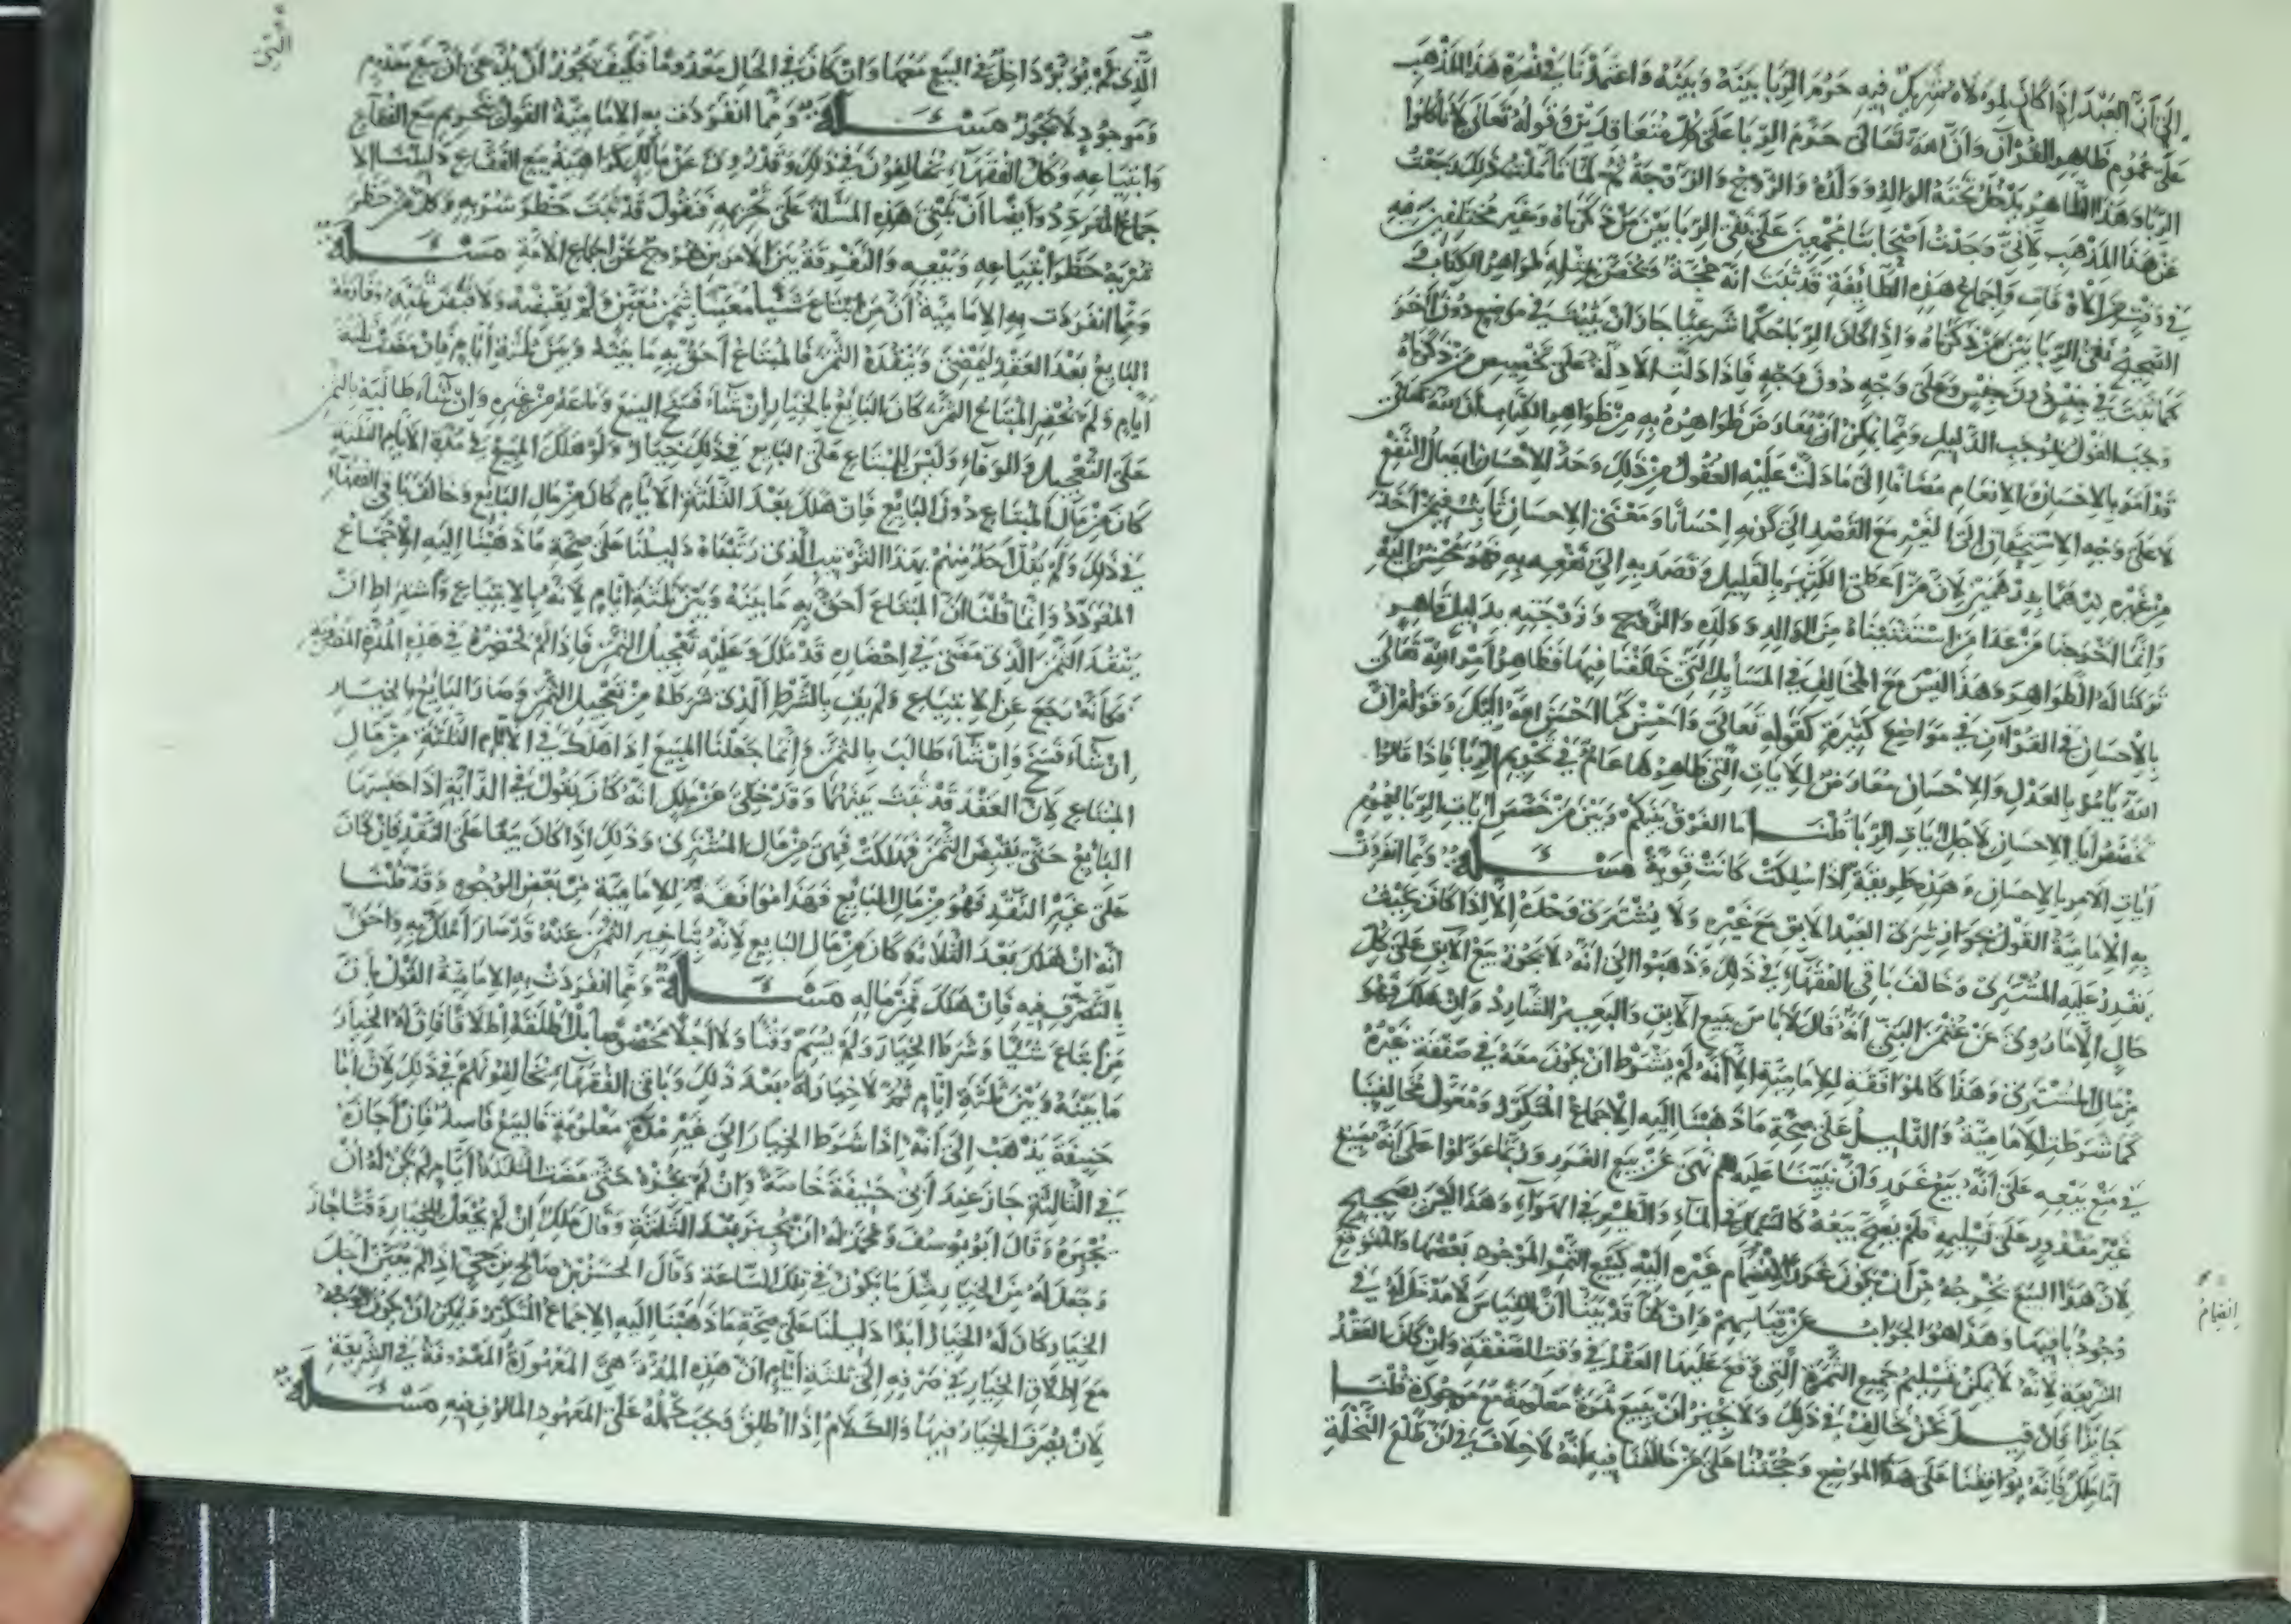 الى أنّ العبد اذا كان لمولاه شريك فيه حرم الربا بينه وبينه واعتمدنا في نصرة هذا المذهب
على عموم ظاهر القرآن وأنّ الله تعالى حرّم الربا على كل متعاقدين وقوله تعالى لا تأكلوا
الربا وهذا الظاهر يدخل تحته الوالد وولده والزوج والزوجة ثم لمّا تأملت ذلك رجعت
عن هذا المذهب لأنّي وجدت أصحابنا مجمعين على نفي الربا بين من ذكرناه وغير مختلفين فيه
في وقت من الأوقات وإجماع هذه الطائفة قد ثبت انه حجة وتخص بمثله ظواهر الكتاب
الصحيح نفي الربا بين من ذكرناه واذا كان الربا حكما شرعيا جاز أن يثبت في موضع دون آخر
كما ثبت في جنس دون جنس وعلى وجه دون وجه فاذا دلت الادلة على تخصيص من ذكرناه
وجب القول بموجب الدليل ومما يمكن ان يعارض ظواهرهم به من ظواهر الكتاب أن الله تعالى
قد أمر بالاحسان والانعام مضافا الى ما دلت عليه العقول من ذلك وحدّ الاحسان ايصال النفع
لا على وجه الاستحقاق الى الغير مع القصد الى كونه احسانا ومعنى الاحسان ثابت فيمن أخذ
من غيره درهما بدرهمين لان من أعطى الكثير بالقليل وقصد به الى نفعه به فهو محسن اليه
وانما اخرجنا من عدا من استثنيناه من الوالد وولده والزوج وزوجته بدليل قاهر
تركنا له الظواهر وهذا ليس مع المخالف في المسائل التي خالفنا فيها فظاهر أمر الله تعالى
بالاحسان في القرآن في مواضع كثيرة كقوله تعالى وأحسن كما أحسن الله اليك وقوله ان
الله يأمر بالعدل والاحسان معارض للايات التي ظاهرها عام في تحريم الربا فاذا قالوا
نخصص آيات الاحسان لاجل آيات الربا قلنا ما الفرق بينكم وبين من خصص آيات الربا بعموم
آيات الامر بالاحسان وهذه طريقة اذا سلكت كانت قوية مسئلة ومما انفردت
به الامامية القول بجواز شرى العبد الابق مع غيره ولا يشترى وحده الا اذا كان بحيث
يقدر عليه المشتري وخالف باقي الفقهاء في ذلك وذهبوا الى انه لا يجوز بيع الآبق على كل
حال الا ما روي عن عثمن البتي انه قال لا بأس ببيع الآبق والبعير الشارد وان هلك فهو
من مال المشتري وهذا كالموافقة للامامية الا أنه لم يشترط ان يكون معه في صفقة غيره
كما شرطت الامامية والدليل على صحة ما ذهبنا اليه الاجماع المتكرر ومعول مخالفينا
في منع بيعه على أنه بيع غرر وأن نبينا عليه لم نهى عن بيع الغرر وربما عولوا على أنه مبيع
غير مقدور على تسليمه فلم يصح بيعه كالسمك في الماء والطير في الهواء وهذا ليس بصحيح
لان هذا البيع يخرجه من أن يكون غررا انضمام غيره اليه كبيع الثمر الموجود بعضها والمتوقع
وجود باقيها وهذا هو الجواب عن قياسهم وان كنا قد بينا أن القياس لا مدخل له في
الشريعة لانه لا يمكن تسليم جميع الثمرة التي وقع عليها العقد في وقت الصفقة وان كان العقد
جائزا فان قيل نحن نخالف في ذلك ولا نجيز أن يبيع ثمرة معدومة مع موجودة قلنا
أما مالك فانه يوافقنا على هذا الموضع وحجتنا على من خالفنا فيه أنه لا خلاف في ان طلع النخلة
انضمام
الذي لم يؤبّر داخل في البيع معها وان كان في الحال معدوما فكيف يجوز أن يدّعى أن بيع معدوم
وموجود لا يجوز مسئلة ومما انفردت به الامامية القول بتحريم بيع الفقاع
وابتياعه وكل الفقهاء يخالفون في ذلك وقد روي عن مالك كراهية بيع الفقاع دليلنا الا
جماع المتردد وايضا أن يبنى هذه المسألة على تحريمه فنقول قد ثبت حظر شربه وكل من حظر
شربه حظر ابتياعه وبيعه والتفرقة بين الامرين خروج عن اجماع الامة مسئلة
ومما انفردت به الامامية أن من ابتاع شيئا معينا بثمن معين ولم يقبضه ولا قبض ثمنه وفارقه
البايع بعد العقد ليمضي وينقده الثمن فالمبتاع أحق به ما بينه وبين ثلثة أيام فان مضت ثلثة
أيام ولم يحضر المبتاع الثمن كان البايع بالخيار ان شاء فسخ البيع وباعه من غيره وان شاء طالبه بالثمن
على التعجيل والوفاء وليس للمبتاع على البايع في ذلك خيار ولو هلك المبيع في مدة الايام الثلثة
كان من مال المبتاع دون البايع فان هلك بعد الثلثة الايام كان من مال البايع وخالف باقي الفقهاء
في ذلك ولم يقل أحد منهم بهذا الترتيب الذي رتبناه دليلنا على صحة ما ذهبنا اليه الاجماع
المتردد وانما قلنا ان المبتاع أحق به ما بينه وبين ثلثة أيام لانه بالابتياع واشتراط ان
ينقد الثمن الذي مضى في احضاره قد ملك وعليه تعجيل الثمن فاذا لم يحضره في هذه المدة
فكأنه رجع عن الابتياع ولم يف بالشرط الذي شرطه من تعجيل الثمن وصار البايع بالخيار
ان شاء فسخ وان شاء طالب بالثمن وانما جعلنا المبيع اذا هلك في الأيام الثلثة من مال
المبتاع لان العقد قد ثبت بينهما وقد حكي عن ملك انه كان يقول في الدابة اذا حبسها
البايع حتى يقبض الثمن فهلكت فهي من مال المشتري وذلك اذا كان بيعا على النقد فان كان
على غير النقد فهو من مال البايع فهذا موافقة للامامية من بعض الوجوه وقد قلنا
انه ان هلك بعد الثلاثة كان من مال البايع لانه بتاخير الثمن عنه قد صار أملك به وأحق
بالتصرف فيه فان هلك فمن ماله مسئلة ومما انفردت به الامامية القول بأن
من ابتاع شيئا وشرط الخيار ولم يسم وقتا ولا أجلا مخصوصا بل أطلقه اطلاقا فان له الخيار
ما بينه وبين ثلثة ايام ثم لا خيار له بعد ذلك وباقي الفقهاء يخالفونهم في ذلك لان ابا
حنيفة يذهب الى أنه اذا شرط الخيار الى غير مدة معلومة فالبيع فاسد فان أجازه
في الثالثة جاز عند أبي حنيفة خاصة وان لم يجزه حتى مضت الثلثة أيام لم يكن له ان
يجيزه وقال أبو يوسف ومحمد له ان يجيز بعد الثلثة وقال ملك ان لم يجعل للخيار وقتا جاز
وجعل له من الخيار مثل ما يكون في تلك الساعة وقال الحسن بن صالح بن حي اذا لم يعين أجل
الخيار كان له الخيار أبدا دليلنا على صحة ما ذهبنا اليه الاجماع المتكرر ويمكن ان يكون الوجه
مع اطلاق الخيار في صرفه الى ثلثة أيام ان هذه المدة هي المعهودة المعروفة في الشريعة
لان يصرف الخيار فيها والكلام اذا اطلق وجب حمله على المعهود المالوف فيه مسئلة